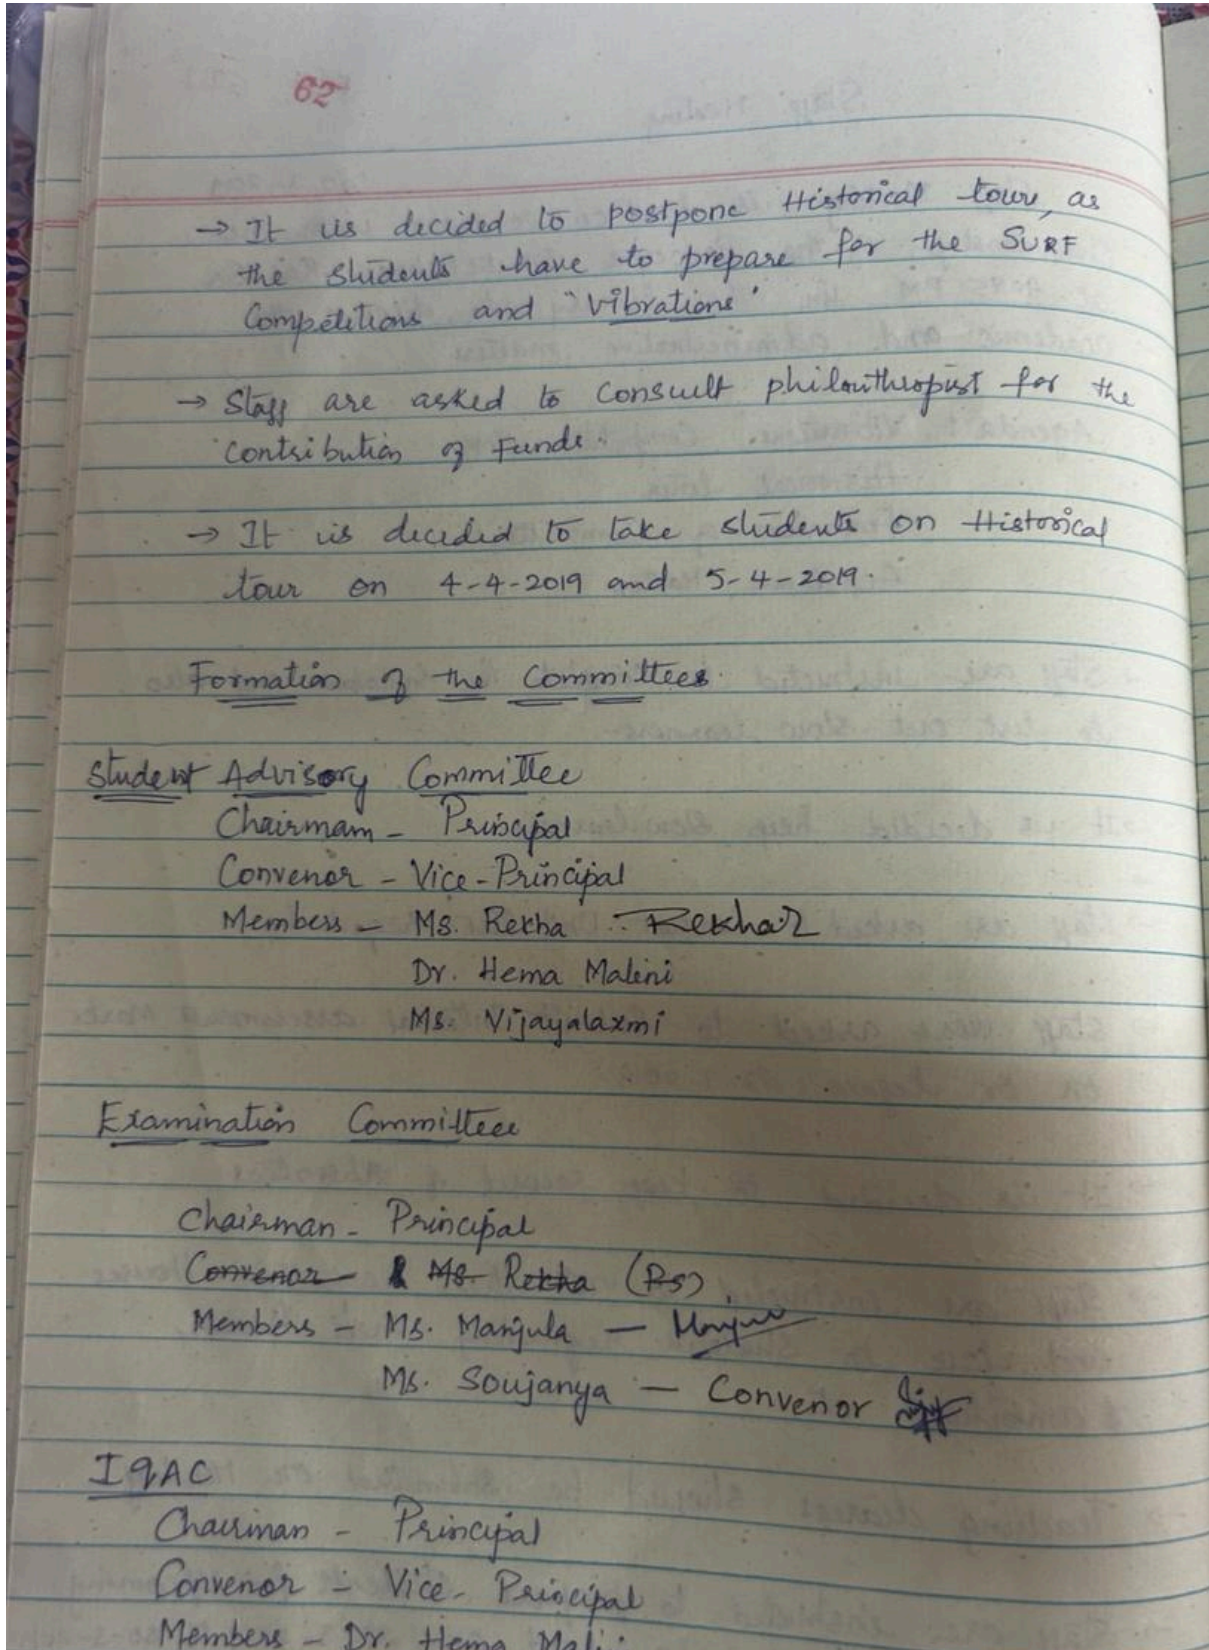 62
→ It is decided to postpone Historical tour, as
the students have to prepare for the SURF
Competitions and "Vibrations"
→ Staff are asked to consult philanthropist for the
contribution of Funds.
→ It is decided to take students on Historical
tour on 4-4-2019 and 5-4-2019.
Formation of the Committees.
Student Advisory Committee
Chairmam - Principal
Convenor - Vice-Principal
Members - Ms. Rekha Rekha
Dr. Hema Malini
Ms. Vijayalaxmi
Examination Committee
Chairman - Principal
Convenor - Ms. Rekha (Rs)
Members - Ms. Manjula - Manjula
Ms. Soujanya - Convenor
IQAC
Chairman - Principal
Convenor - Vice-Principal
Members - Dr. Hema Mali